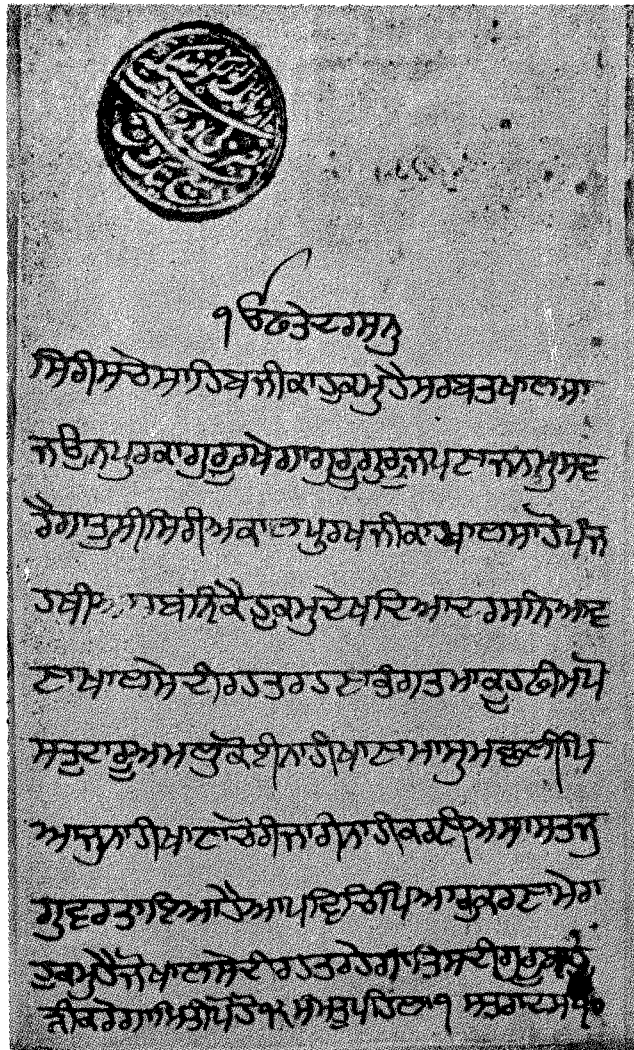 ੴ ਫਤੇ ਦਰਸਨੁ
ਸਿਰੀ ਸਚੇ ਸਾਹਿਬ ਜੀ ਕਾ ਹੁਕਮੁ ਹੈ ਸਰਬਤ ਖਾਲਸਾ
ਜਉਨਪੁਰ ਕਾ ਗੁਰੂ ਰਖੇਗਾ ਗੁਰੂ ਗੁਰੂ ਜਪਣਾ ਜਨਮੁ ਸਵ
ਰੈਗਾ ਤੁਸੀ ਸਿਰੀ ਅਕਾਲ ਪੁਰਖ ਜੀ ਕਾ ਖਾਲਸਾ ਹੋ ਪੰਜ
ਬੰਨਿ ਕੈ ਹੁਕਮੁ ਦੇਖਦਿਆ ਦਰਸਨਿ ਆਵ
ਣਾ ਖਾਲਸੇ ਦੀ ਰਹਤ ਰਹਣਾ ਭੰਗ ਤਮਾਕੂ ਹਫੀਮ ਪੋ
ਸਤੁ ਦਾਰੂ ਅਮਲੁ ਕੋਈ ਨਾਹੀ ਖਾਣਾ ਮਾਸੁ ਮਛਲੀ ਪਿ
ਆਜੁ ਨਾਹੀ ਖਾਣਾ ਚੋਰੀ ਜਾਰੀ ਨਾਹੀ ਕਰਣੀ ਅਸਾ ਸਤਜੁ
ਗੁ ਵਰਤਾਇਆ ਹੈ ਆਪ ਵਿਚਿ ਪਿਆਰੁ ਕਰਣਾ ਮੇਰਾ
ਹੁਕਮੁ ਹੈ ਜੋ ਖਾਲਸੇ ਦੀ ਰਹਤ ਰਹੇਗਾ ਤਿਸ ਦੀ ਗੁਰੂ
ਕਰੇਗਾ ਮਿਤੀ ਪੋਹੋ ੧੨ ਸੰਮਤੁ ਪਹਿਲਾ ੧ ਸਤਰਾ ਦਸ ੧੦